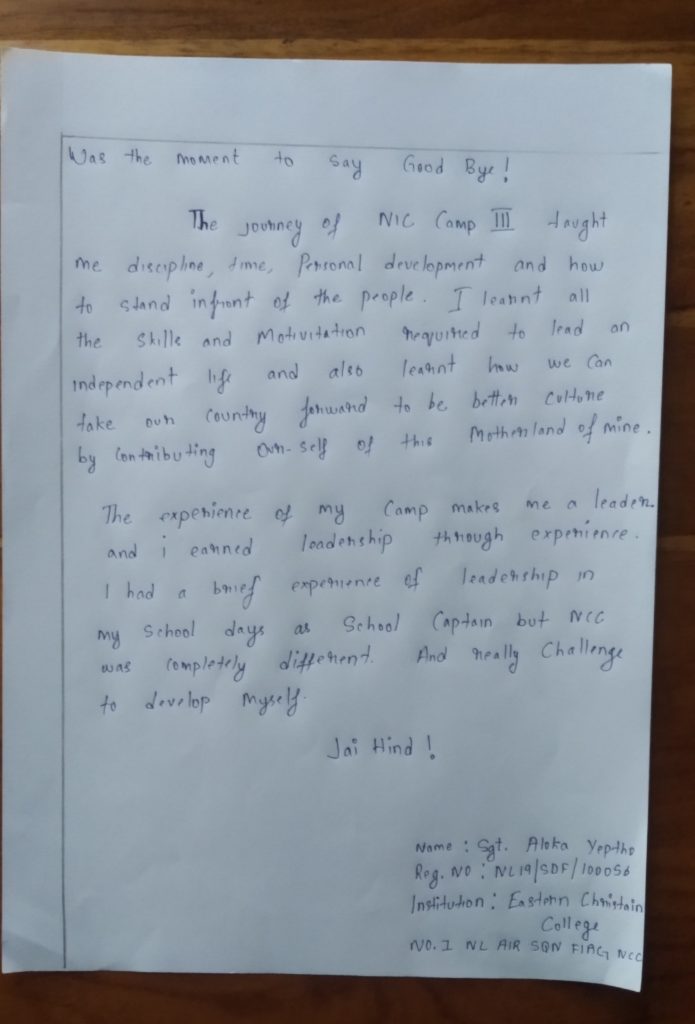 Was the moment to say Good Bye!
The journey of NIC Camp III taught
me discipline, time, Personal development and how
to stand infront of the people. I learnt all
the skills and Motivitation required to lead an
independent life and also learnt how we can
take our country forward to be better culture
by contributing our-self of this Motherland of mine.
The experience of my Camp makes me a leader.
and i earned leadership through experience.
I had a brief experience of leadership in
my School days as School Captain but NCC
was completely different. And really Challenge
to develop Myself.
Jai Hind!
Name : Sgt. Aloka Yeptho
Reg. NO : NL19/SDF/100056
Institution : Eastern Christain
College
NO. I NL AIR SQN FLAG NCC